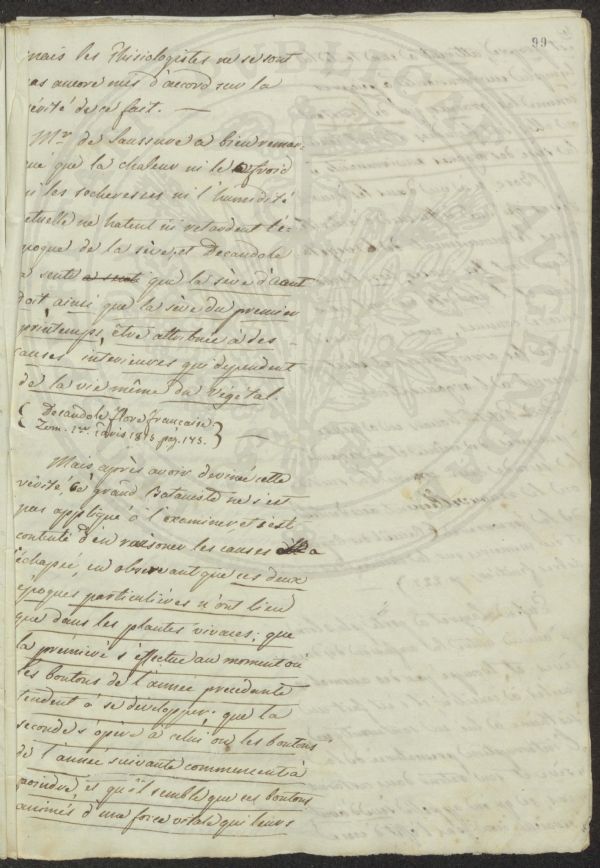 99
mais les Phisiologistes ne se sont
pas ancore mis d'accord sur la
vérité de ce fait. —
Mr. de Saussure a bien remar-
qué que la chaleur ni le froid
ni les secheresses ni l'humidité
actuelle ne hatent ni retardent l'é-
poque de la sève, et Decandole
a senti que la sève d'Aout
doit ainsi que la sève du premier
printemps être attribuée à des
causes intérieures qui dependent
de la vie même du végétal
{ Decandole flore francaise
Tom. 1er. Paris 1815 pag. 145. } —
Mais après avoir deviné cette
vérité, ce grand Botaniste ne s'est
pas appliqué à l'examiner, et s'est
contenté d'en raisoner les causes
échapée, en observant que ces deux
époques particulières n'ont lieu
que dans les plantes vivaces; que
la première s'effectue au moment où
les boutons de l'année precedante
tendent à se developper; que la
seconde s'opère à celui, où les boutons
de l'année suivante commencent à
poindre, et qu'il semble que ces boutons
animés d'une force vitale qui leurs